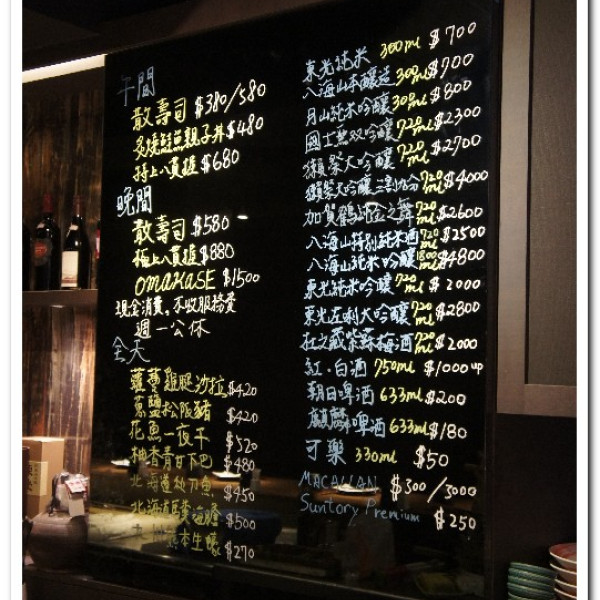 午間
散壽司 $380/580
炙燒鮭魚親子丼 $480
特上八貫握 $680
晚間
散壽司 $580
極上八貫握 $880
OMAKASE $1500
現金消費。不收服務費
週一公休
全天
蘿蔓雞腿沙拉 $420
蔥鹽松阪豬 $420
花魚一夜干 $520
柚香青甘下巴 $480
北海道秋刀魚 $450
北海道馬糞海膽 $500
熊本生蠔 $270
東光純米 300ml $700
八海山本釀造 300ml $700
月山純米吟釀 300ml $800
國士無双吟釀 720ml $2300
獺祭大吟釀 720ml $2700
獺祭大吟釀 三割九分 720ml $4000
加賀鶴純金之舞 720ml $2600
八海山特別純米酒 720ml $2500
八海山純米吟釀 1800ml $4800
東光純米吟釀 720ml $2000
東光左利大吟釀 720ml $2800
杜之藏紫蘇梅酒 720ml $2000
紅.白酒 750ml $1000up
朝日啤酒 633ml $200
麒麟啤酒 633ml $180
可樂 330ml $50
MACALLAN $300/3000
Suntory Premium $250